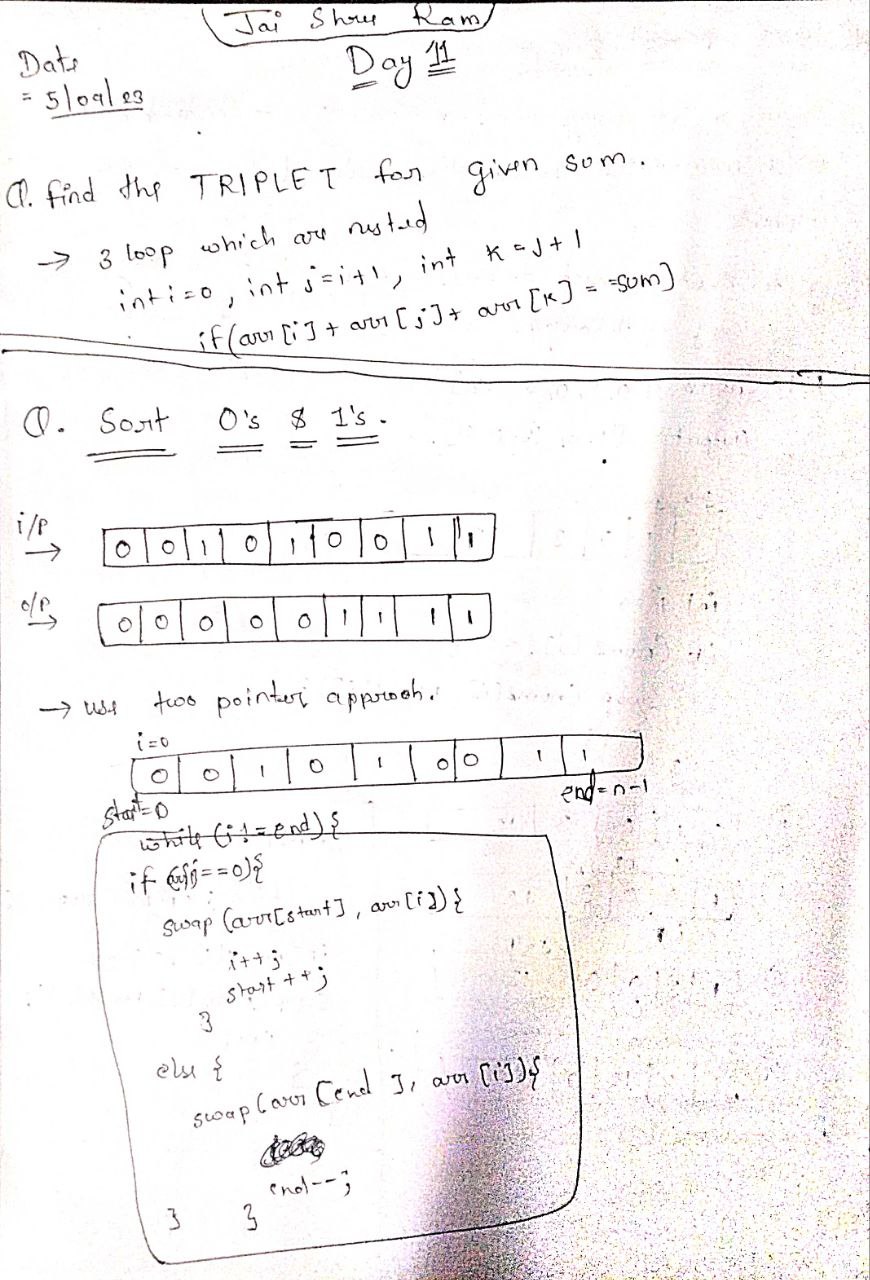 Jai Shree Ram
Day 11
Date
= 5/09/23
Q. find the TRIPLET for given sum.
→ 3 loop which are nested
int i=0, int j=i+1, int K=J+1
if(arr[i]+arr[j]+arr[K]==sum]
Q. Sort 0's & 1's.
i/p → 0 0 1 0 1 0 0 1 1
o/p → 0 0 0 0 0 1 1 1 1
→ use two pointer approch.
i=0
0 0 1 0 1 0 0 1 1
start=0 end=n-1
while (i!=end){
if (arr[i]==0){
swap (arr[start], arr[i]){
i++;
start++;
}
else {
swap(arr[end], arr[i]){
end--;
} }